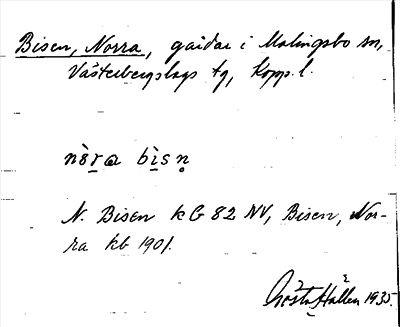 Bisen, Norra, gårdar i Malingsbo sn,
Västerbergslags tg, Kopp. l.
nò̱ra bìsn̥
N. Bisen kG 82 NV, Bisen, Nor-
ra kb 1901.
Gösta Hallen 1935.